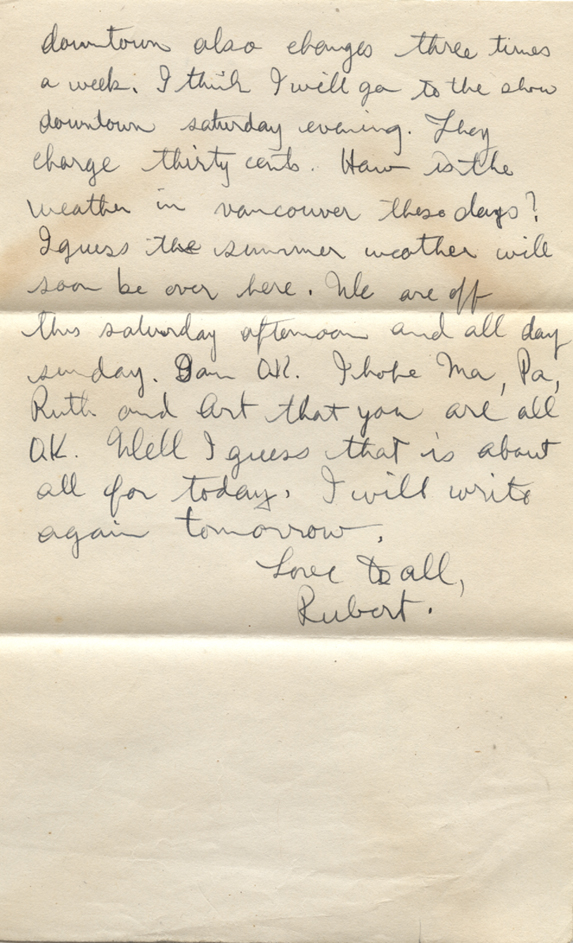 downtown also changes three times
a week. I think I will go to the show
downtown saturday evening. They
charge thirty cents. How is the
weather in vancouver these days?
I guess the summer weather will
soon be over here. We are off
this saturday afternoon and all day
sunday. I am OK. I hope Ma, Pa,
Ruth and Art that you are all
OK. Well I guess that is about
all for today. I will write
again tomorrow.
Love to all,
Rubert.